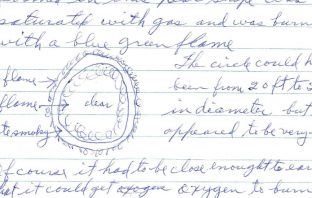 saturated with gas and was burn
with a blue green flame
The circle could h
flame
been from 20 ft to
flame
clear
in diameter but
te smokey
appeared to be very
f course it had to be close enought to ear
hat it could get oxygen to burn